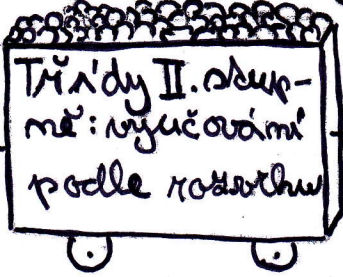 Třídy II. skup-
ně: vyučování
podle rozvrhu